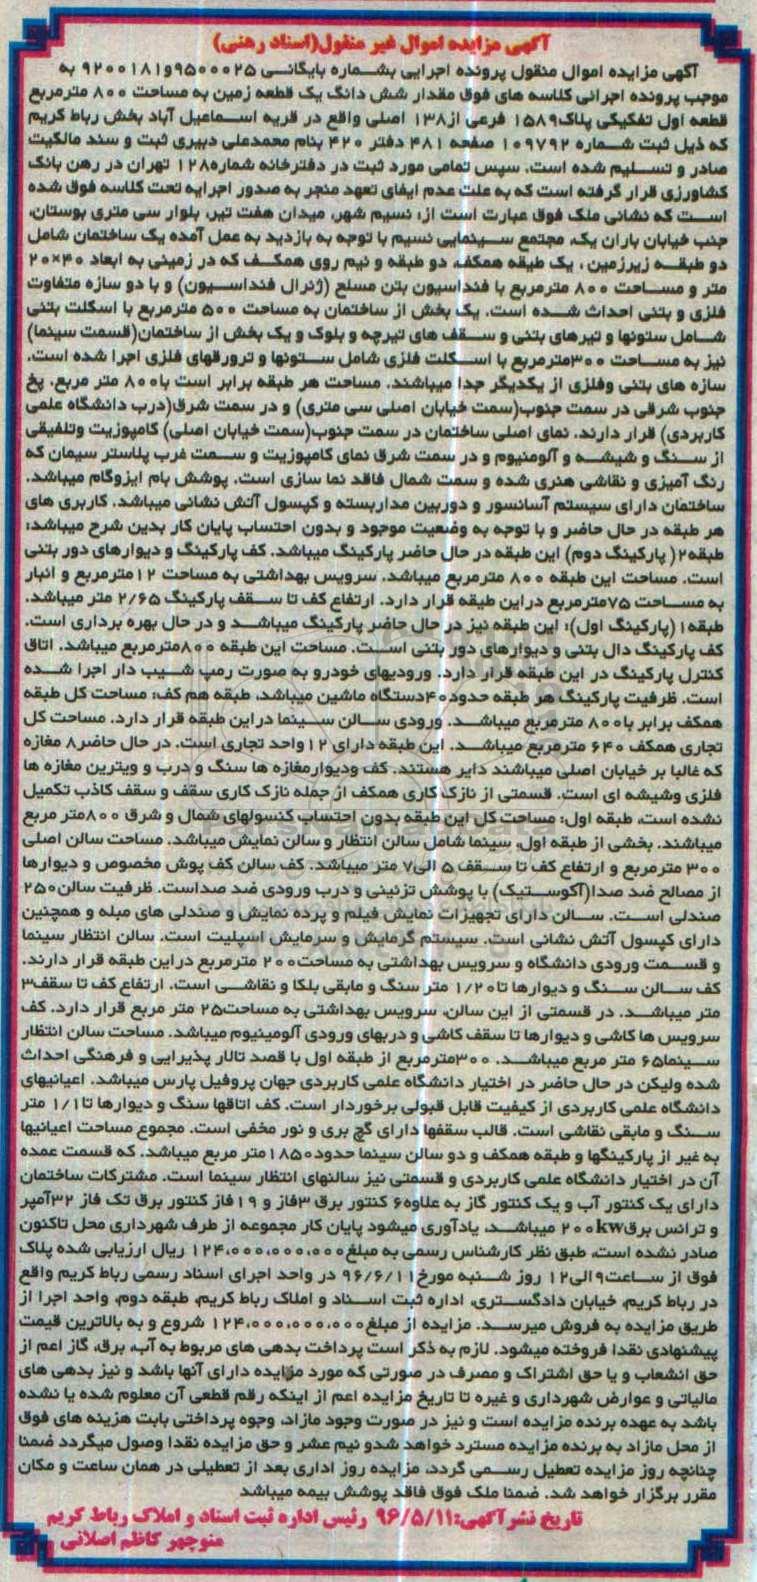 آگهی مزایده اموال غیر منقول(اسناد رهنی)
آگهی مزایده اموال منقول پرونده اجرایی بشماره بایگانی ۹۵۰۰۰۲۵و۹۲۰۰۱۸۱ به
موجب پرونده اجرائی کلاسه های فوق مقدار شش دانگ یک قطعه زمین به مساحت ۸۰۰ مترمربع
قطعه اول تفکیکی پلاک۱۵۸۹ فرعی از۱۳۸ اصلی واقع در قریه اسماعیل آباد بخش رباط کریم
که ذیل ثبت شماره ۱۰۹۷۹۲ صفحه ۴۸۱ دفتر ۴۲۰ بنام محمدعلی دبیری ثبت و سند مالکیت
صادر و تسلیم شده است. سپس تمامی مورد ثبت در دفترخانه شماره۱۲۸ تهران در رهن بانک
کشاورزی قرار گرفته است که به علت عدم ایفای تعهد منجر به صدور اجرایه تحت کلاسه فوق شده
است که نشانی ملک فوق عبارت است از: نسیم شهر، میدان هفت تیر، بلوار سی متری بوستان،
جنب خیابان باران یک، مجتمع سینمایی نسیم با توجه به بازدید به عمل آمده یک ساختمان شامل
دو طبقه زیرزمین ، یک طیقه همکف، دو طبقه و نیم روی همکف که در زمینی به ابعاد ۴۰×۲۰
متر و مساحت ۸۰۰ مترمربع با فنداسیون بتن مسلح (ژنرال فنداسیون) و با دو سازه متفاوت
فلزی و بتنی احداث شده است. یک بخش از ساختمان به مساحت ۵۰۰ مترمربع با اسکلت بتنی
شامل ستونها و تیرهای بتنی و سقف های تیرچه و بلوک و یک بخش از ساختمان(قسمت سینما)
نیز به مساحت ۳۰۰مترمربع با اسکلت فلزی شامل ستونها و ترورقهای فلزی اجرا شده است.
سازه های بتنی وفلزی از یکدیگر جدا میباشند. مساحت هر طبقه برابر است با۸۰۰ متر مربع. پخ
جنوب شرقی در سمت جنوب(سمت خیابان اصلی سی متری) و در سمت شرق(درب دانشگاه علمی
کاربردی) قرار دارند. نمای اصلی ساختمان در سمت جنوب(سمت خیابان اصلی) کامپوزیت وتلفیقی
از سنگ و شیشه و آلومنیوم و در سمت شرق نمای کامپوزیت و سمت غرب پلاستر سیمان که
رنگ آمیزی و نقاشی هنری شده و سمت شمال فاقد نما سازی است. پوشش بام ایزوگام میباشد.
ساختمان دارای سیستم آسانسور و دوربین مداربسته و کپسول آتش نشانی میباشد. کاربری های
هر طبقه در حال حاضر و با توجه به وضعیت موجود و بدون احتساب پایان کار بدین شرح میباشد:
طبقه۲( پارکینگ دوم) این طبقه در حال حاضر پارکینگ میباشد. کف پارکینگ و دیوارهای دور بتنی
است. مساحت این طبقه ۸۰۰ مترمربع میباشد. سرویس بهداشتی به مساحت ۱۲مترمربع و انبار
به مساحت ۷۵مترمربع دراین طیقه قرار دارد. ارتفاع کف تا سقف پارکینگ ۲/۶۵ متر میباشد.
طبقه۱ (پارکینگ اول): این طبقه نیز در حال حاضر پارکینگ میباشد و در حال بهره برداری است.
کف پارکینگ دال بتنی و دیوارهای دور بتنی است. مساحت این طبقه ۸۰۰مترمربع میباشد. اتاق
کنترل پارکینگ در این طبقه قرار دارد. ورودیهای خودرو به صورت رمپ شیب دار اجرا شده
است. ظرفیت پارکینگ هر طبقه حدود۴۰دستگاه ماشین میباشد، طبقه هم کف: مساحت کل طبقه
همکف برابر با۸۰۰ مترمربع میباشد. ورودی سالن سینما دراین طبقه قرار دارد. مساحت کل
تجاری همکف ۶۴۰ مترمربع میباشد. این طبقه دارای ۱۲واحد تجاری است. در حال حاضر۸ مغازه
که غالبا بر خیابان اصلی میباشند دایر هستند. کف ودیوارمغازه ها سنگ و درب و ویترین مغازه ها
فلزی وشیشه ای است. قسمتی از نازک کاری همکف از جمله نازک کاری سقف و سقف کاذب تکمیل
نشده است، طبقه اول: مساحت کل این طبقه بدون احتساب کنسولهای شمال و شرق ۸۰۰متر مربع
میباشند. بخشی از طبقه اول، سینما شامل سالن انتظار و سالن نمایش میباشد. مساحت سالن اصلی
۳۰۰ مترمربع و ارتفاع کف تا سقف ۵ الی۷ متر میباشد. کف سالن کف پوش مخصوص و دیوارها
از مصالح ضد صدا(آکوستیک) با پوشش تزئینی و درب ورودی ضد صداست. ظرفیت سالن۲۵۰
صندلی است. سالن دارای تجهیزات نمایش فیلم و پرده نمایش و صندلی های مبله و همچنین
دارای کپسول آتش نشانی است. سیستم گرمایش و سرمایش اسپلیت است. سالن انتظار سینما
و قسمت ورودی دانشگاه و سرویس بهداشتی به مساحت۲۰۰ مترمربع دراین طبقه قرار دارند.
کف سالن سنگ و دیوارها تا۱/۲۰ متر سنگ و مابقی بلکا و نقاشی است. ارتفاع کف تا سقف۳
متر میباشد. در قسمتی از این سالن، سرویس بهداشتی به مساحت۲۵ متر مربع قرار دارد. کف
سرویس ها کاشی و دیوارها تا سقف کاشی و دربهای ورودی آلومینیوم میباشد. مساحت سالن انتظار
سینما۶۵ متر مربع میباشد. ۳۰۰مترمربع از طبقه اول با قصد تالار پذیرایی و فرهنگی احداث
شده ولیکن در حال حاضر در اختیار دانشگاه علمی کاربردی جهان پروفیل پارس میباشد. اعیانیهای
دانشگاه علمی کاربردی از کیفیت قابل قبولی برخوردار است. کف اتاقها سنگ و دیوارها تا۱/۱ متر
سنگ و مابقی نقاشی است. قالب سقفها دارای گچ بری و نور مخفی است. مجموع مساحت اعیانیها
به غیر از پارکینگها و طبقه همکف و دو سالن سینما حدود۱۸۵۰متر مربع میباشد. که قسمت عمده
آن در اختیار دانشگاه علمی کاربردی و قسمتی نیز سالنهای انتظار سینما است. مشترکات ساختمان
دارای یک کنتور آب و یک کنتور گاز به علاوه۶ کنتور برق ۳فاز و ۱۹فاز کنتور برق تک فاز ۳۲آمپر
و ترانس برق۲۰۰kw میباشد، یادآوری میشود پایان کار مجموعه از طرف شهرداری محل تاکنون
صادر نشده است، طبق نظر کارشناس رسمی به مبلغ۱۲۴،۰۰۰،۰۰۰،۰۰۰ ریال ارزیابی شده پلاک
فوق از ساعت۹الی۱۲ روز شنبه مورخ۹۶/۶/۱۱ در واحد اجرای اسناد رسمی رباط کریم واقع
در رباط کریم، خیابان دادگستری، اداره ثبت اسناد و املاک رباط کریم، طبقه دوم، واحد اجرا از
طریق مزایده به فروش میرسد. مزایده از مبلغ۱۲۴،۰۰۰،۰۰۰،۰۰۰ شروع و به بالاترین قیمت
پیشنهادی نقدا فروخته میشود. لازم به ذکر است پرداخت بدهی های مربوط به آب، برق، گاز اعم از
حق انشعاب و یا حق اشتراک و مصرف در صورتی که مورد مزایده دارای آنها باشد و نیز بدهی های
مالیاتی و عوارض شهرداری و غیره تا تاریخ مزایده اعم از اینکه رقم قطعی آن معلوم شده یا نشده
باشد به عهده برنده مزایده است و نیز در صورت وجود مازاد، وجوه پرداختی بابت هزینه های فوق
از محل مازاد به برنده مزایده مسترد خواهد شدو نیم عشر و حق مزایده نقدا وصول میگردد ضمنا
چنانچه روز مزایده تعطیل رسمی گردد، مزایده روز اداری بعد از تعطیلی در همان ساعت و مکان
مقرر برگزار خواهد شد. ضمنا ملک فوق فاقد پوشش بیمه میباشد
تاریخ نشرآگهی:۹۶/۵/۱۱ رئیس اداره ثبت اسناد و املاک رباط کریم
منوچهر کاظم اصلانی